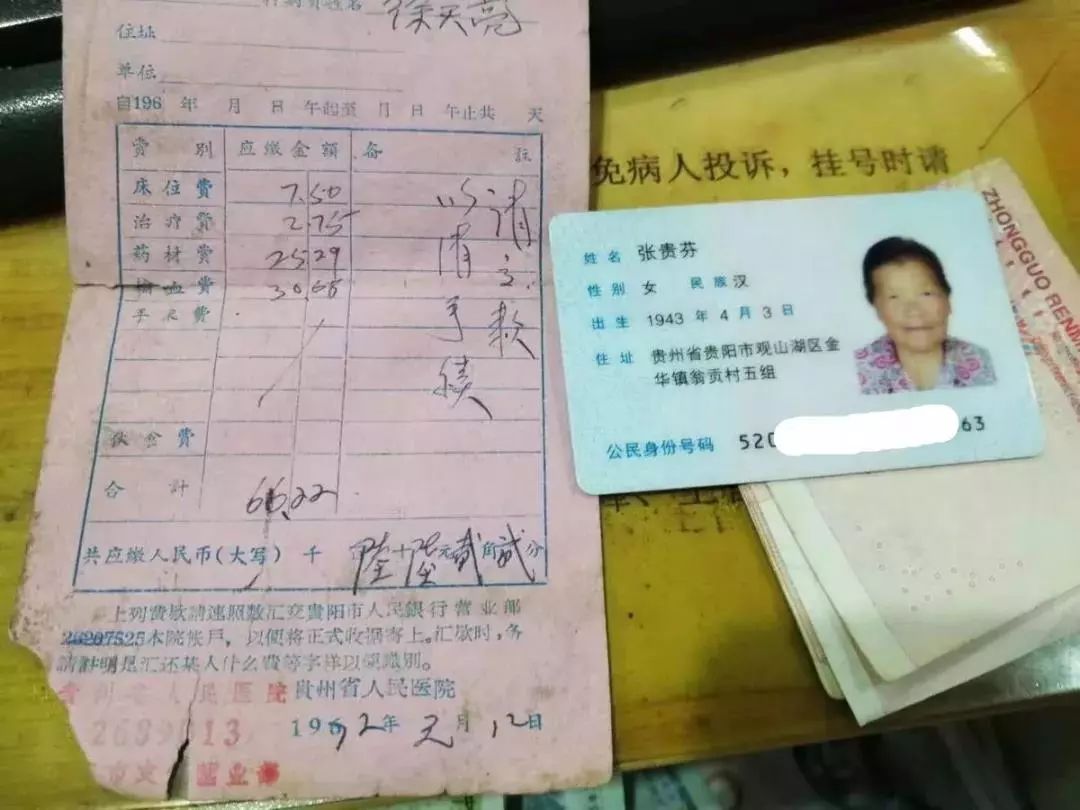 徐天亮
住址
单位
自196 年 月 日 午起至 月 日 午止共 天
費別 应繳金額 备註
床位費 7.50
治疗費 2.75
药材費 25.29
输血費 30.68
手术費
请速
款
手
续
伙食費
合計 66.22
共应繳人民币(大写) 千 陆十陆元贰角贰分
上列費欵請速照数汇交貴阳市人民銀行营业部
26207525本院帐戶，以便将正式收据寄上。汇欵时，务
請註明是汇还某人什么費等字样以便識別。
贵州省人民医院
1962年元月12日
2689013
营业部
免病人投诉，挂号时请
姓名 张贵芬
性别 女 民族 汉
出生 1943 年 4 月 3 日
住址 贵州省贵阳市观山湖区金
华镇翁贡村五组
公民身份号码 520 63
ZHONGGUO RENM